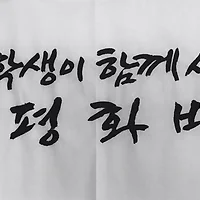 학생이 함께
평화